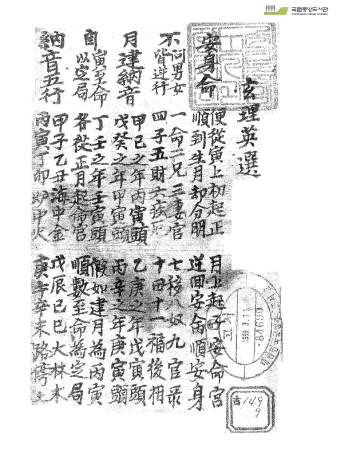 국립중앙도서관
玄理英選
安身命
便從寅上初起正 月上起子安命宮
不問男女皆逆行
順到生月却分明 逆回安命順安身
一命二兄三妻宮 七移八奴九官祿
四子五財六疾厄 十田十一福後相
月建納音
甲己之年丙寅頭 乙庚之年戊寅頭
戊癸之年甲寅頭 丙辛之年庚寅頭
自寅至命以定局
丁壬之年壬寅頭 假如建月為丙寅
各從正月起命宮 順數至命為定局
納音五行
甲子乙丑海中金 戊辰己巳大林木
丙寅丁卯炉中火 庚午辛未路傍土
古149
9